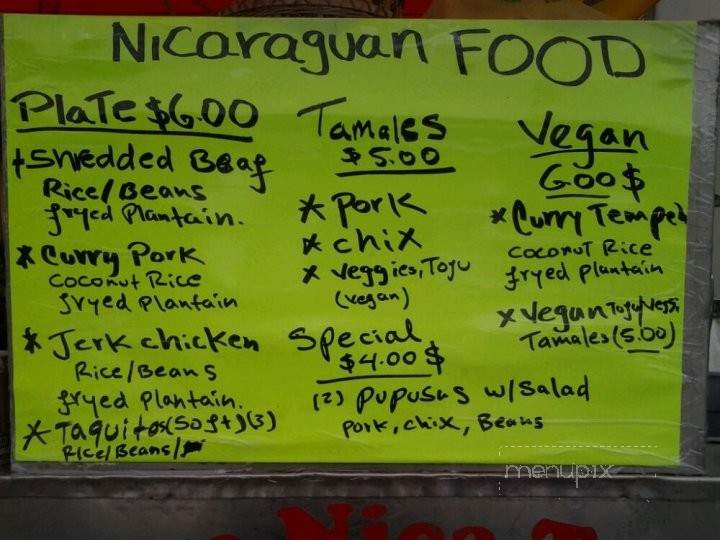 Nicaraguan FOOD
Plate $6.00
+ Shredded Beaf
Rice/Beans
fryed Plantain.
* Curry Pork
coconut Rice
fryed Plantain
* Jerk chicken
Rice/Beans
fryed Plantain.
* Taquitos (Soft) (3)
Rice/Beans/
Tamales
$5.00
* Pork
* chix
* Veggies, Tofu
(vegan)
Special
$4.00$
(2) Pupusas w/salad
pork, chix, Beans
Vegan
6.00$
* Curry Tempeh
coconut Rice
fryed plantain
* Vegan Tofu/Veggi
Tamales (5.00)
menupix